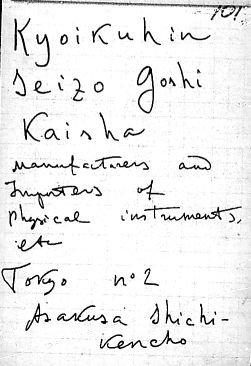 101
Kyoikuhin
Seizo Goshi
Kaisha
manufacturers and
Importers of
physical instruments,
etc
Tokyo n°2
Asakusa Shichi-
kencho